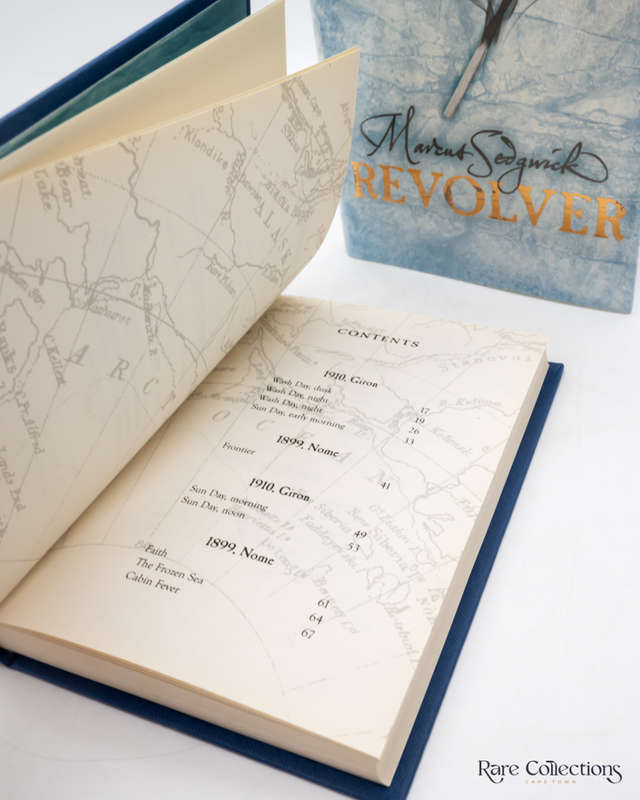 Marcus Sedgwick
REVOLVER
Klondike
ALASK
Great
Bear
Lake
Bathurst
ARC
CONTENTS
1910, Giron
Wash Day, dusk 17
Wash Day, night 19
Wash Day, night 26
Sun Day, early morning 33
1899, Nome
Frontier 41
1910, Giron
Sun Day, morning 49
Sun Day, noon 53
1899, Nome
Faith 61
The Frozen Sea 64
Cabin Fever 67
OCEAN
Siberia
Rare Collections
CAPE TOWN